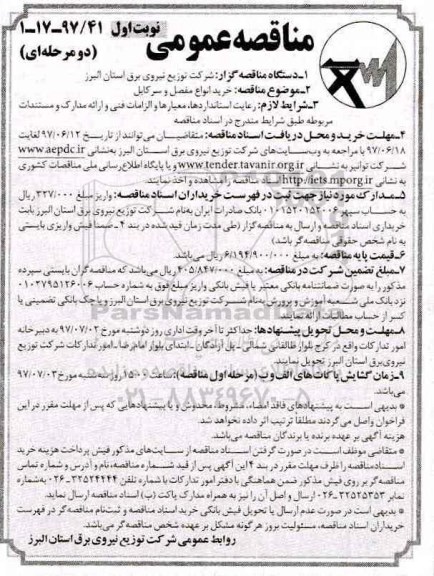 مناقصه عمومی
نوبت اول ۹۷/۴۱-۱۷-۱
(دو مرحله‌ای)
۱-دستگاه مناقصه گزار: شرکت توزیع نیروی برق استان البرز
۲-موضوع مناقصه: خرید انواع مفصل و سرکابل
۳-شرایط لازم: رعایت استانداردها، معیارها و الزامات فنی و ارائه مدارک و مستندات
مربوطه طبق شرایط مندرج در اسناد مناقصه
۴-مهلت خرید و محل دریافت اسناد مناقصه: متقاضیان می‌توانند از تاریخ ۹۷/۰۶/۱۲ لغایت
۹۷/۰۶/۱۸ با مراجعه به وب‌سایت‌های شرکت توزیع نیروی برق استان البرز به‌نشانی www.aepdc.ir
شرکت توانیر به نشانی www.tender.tavanir.org.ir و یا پایگاه اطلاع‌رسانی ملی مناقصات کشوری
به نشانی http://iets.mporg.ir اسناد مناقصه را مشاهده و اخذ نمایند.
۵-مدارک مورد نیاز جهت ثبت در فهرست خریداران اسناد مناقصه: واریز مبلغ ۳۳۷/۰۰۰ ریال
به حساب سپهر ۰۱۰۱۵۲۰۱۵۲۰۰۶ بانک صادرات ایران به‌نام شرکت توزیع نیروی برق استان البرز بابت
خریداری اسناد مناقصه و ارسال به مناقصه‌گزار (طی مدت زمان قید شده در بند ۴-ضمنا فیش واریزی بایستی
به نام شخص حقوقی مناقصه‌گر باشد)
۶-قیمت پایه مناقصه: به مبلغ ۶/۱۹۴/۹۰۰/۰۰۰ ریال می‌باشد.
۷-مبلغ تضمین شرکت در مناقصه: به مبلغ ۴۰۵/۸۴۷/۰۰۰ ریال می‌باشد که مناقصه‌گران بایستی سپرده
مذکور را به صورت ضمانتنامه بانکی معتبر یا فیش بانکی واریز مبلغ فوق به شماره حساب ۰۱۰۳۷۹۵۱۲۶۰۰۶
نزد بانک ملی شعبه آموزش و پرورش به‌نام شرکت توزیع نیروی برق استان البرز و یا چک بانکی تضمینی یا
کسر از حساب مطالبات ارائه نمایند.
۸-مهلت و محل تحویل پیشنهادها: حداکثر تا آخر وقت اداری روز دوشنبه مورخ ۹۷/۰۷/۰۲ به دبیرخانه
امور تدارکات واقع در کرج بلوار طالقانی شمالی-پل آزادگان-ابتدای بلوار امام رضا-امور تدارکات شرکت توزیع
نیروی برق استان البرز تحویل نمایند.
۹-زمان گشایش پاکات‌های الف و ب (مرحله اول مناقصه): ساعت ۱۵:۰۰ روز سه‌شنبه مورخ ۹۷/۰۷/۰۳
می‌باشد.
* بدیهی است به پیشنهادهای فاقد امضاء، مشروط، مخدوش و یا پیشنهادهایی که پس از مهلت مقرر در این
فراخوان واصل می‌گردند مطلقا ترتیب اثر داده نخواهد شد.
هزینه آگهی بر عهده برنده یا برندگان مناقصه می‌باشد.
* متقاضی موظف است در صورت گرفتن اسناد مناقصه از سایت‌های مذکور فیش پرداخت هزینه خرید
اسناد مناقصه را ظرف مهلت مقرر در بند ۴ این آگهی پس از قید شماره مناقصه، نام و آدرس و شماره تماس
مناقصه‌گر بر روی فیش مذکور ضمن هماهنگی با دفتر امور تدارکات با شماره تلفن ۳۲۵۲۴۲۴۴-۰۲۶ به‌شماره
نمابر ۳۲۵۲۵۳۵۳-۰۲۶ ارسال و اصل آن را نیز به همراه مدارک پاکت (ب) اسناد مناقصه ارسال نماید.
* بدیهی است در صورت عدم ارسال یا تحویل فیش بانکی خرید اسناد مناقصه و ثبت‌نام مناقصه‌گر در فهرست
خریداران اسناد مناقصه، مسئولیت بروز هرگونه مشکل بر عهده شخص مناقصه‌گر می‌باشد.
روابط عمومی شرکت توزیع نیروی برق استان البرز
ParsNamadData
۰۲۱-۸۸۳۴۹۶۷۰-۵